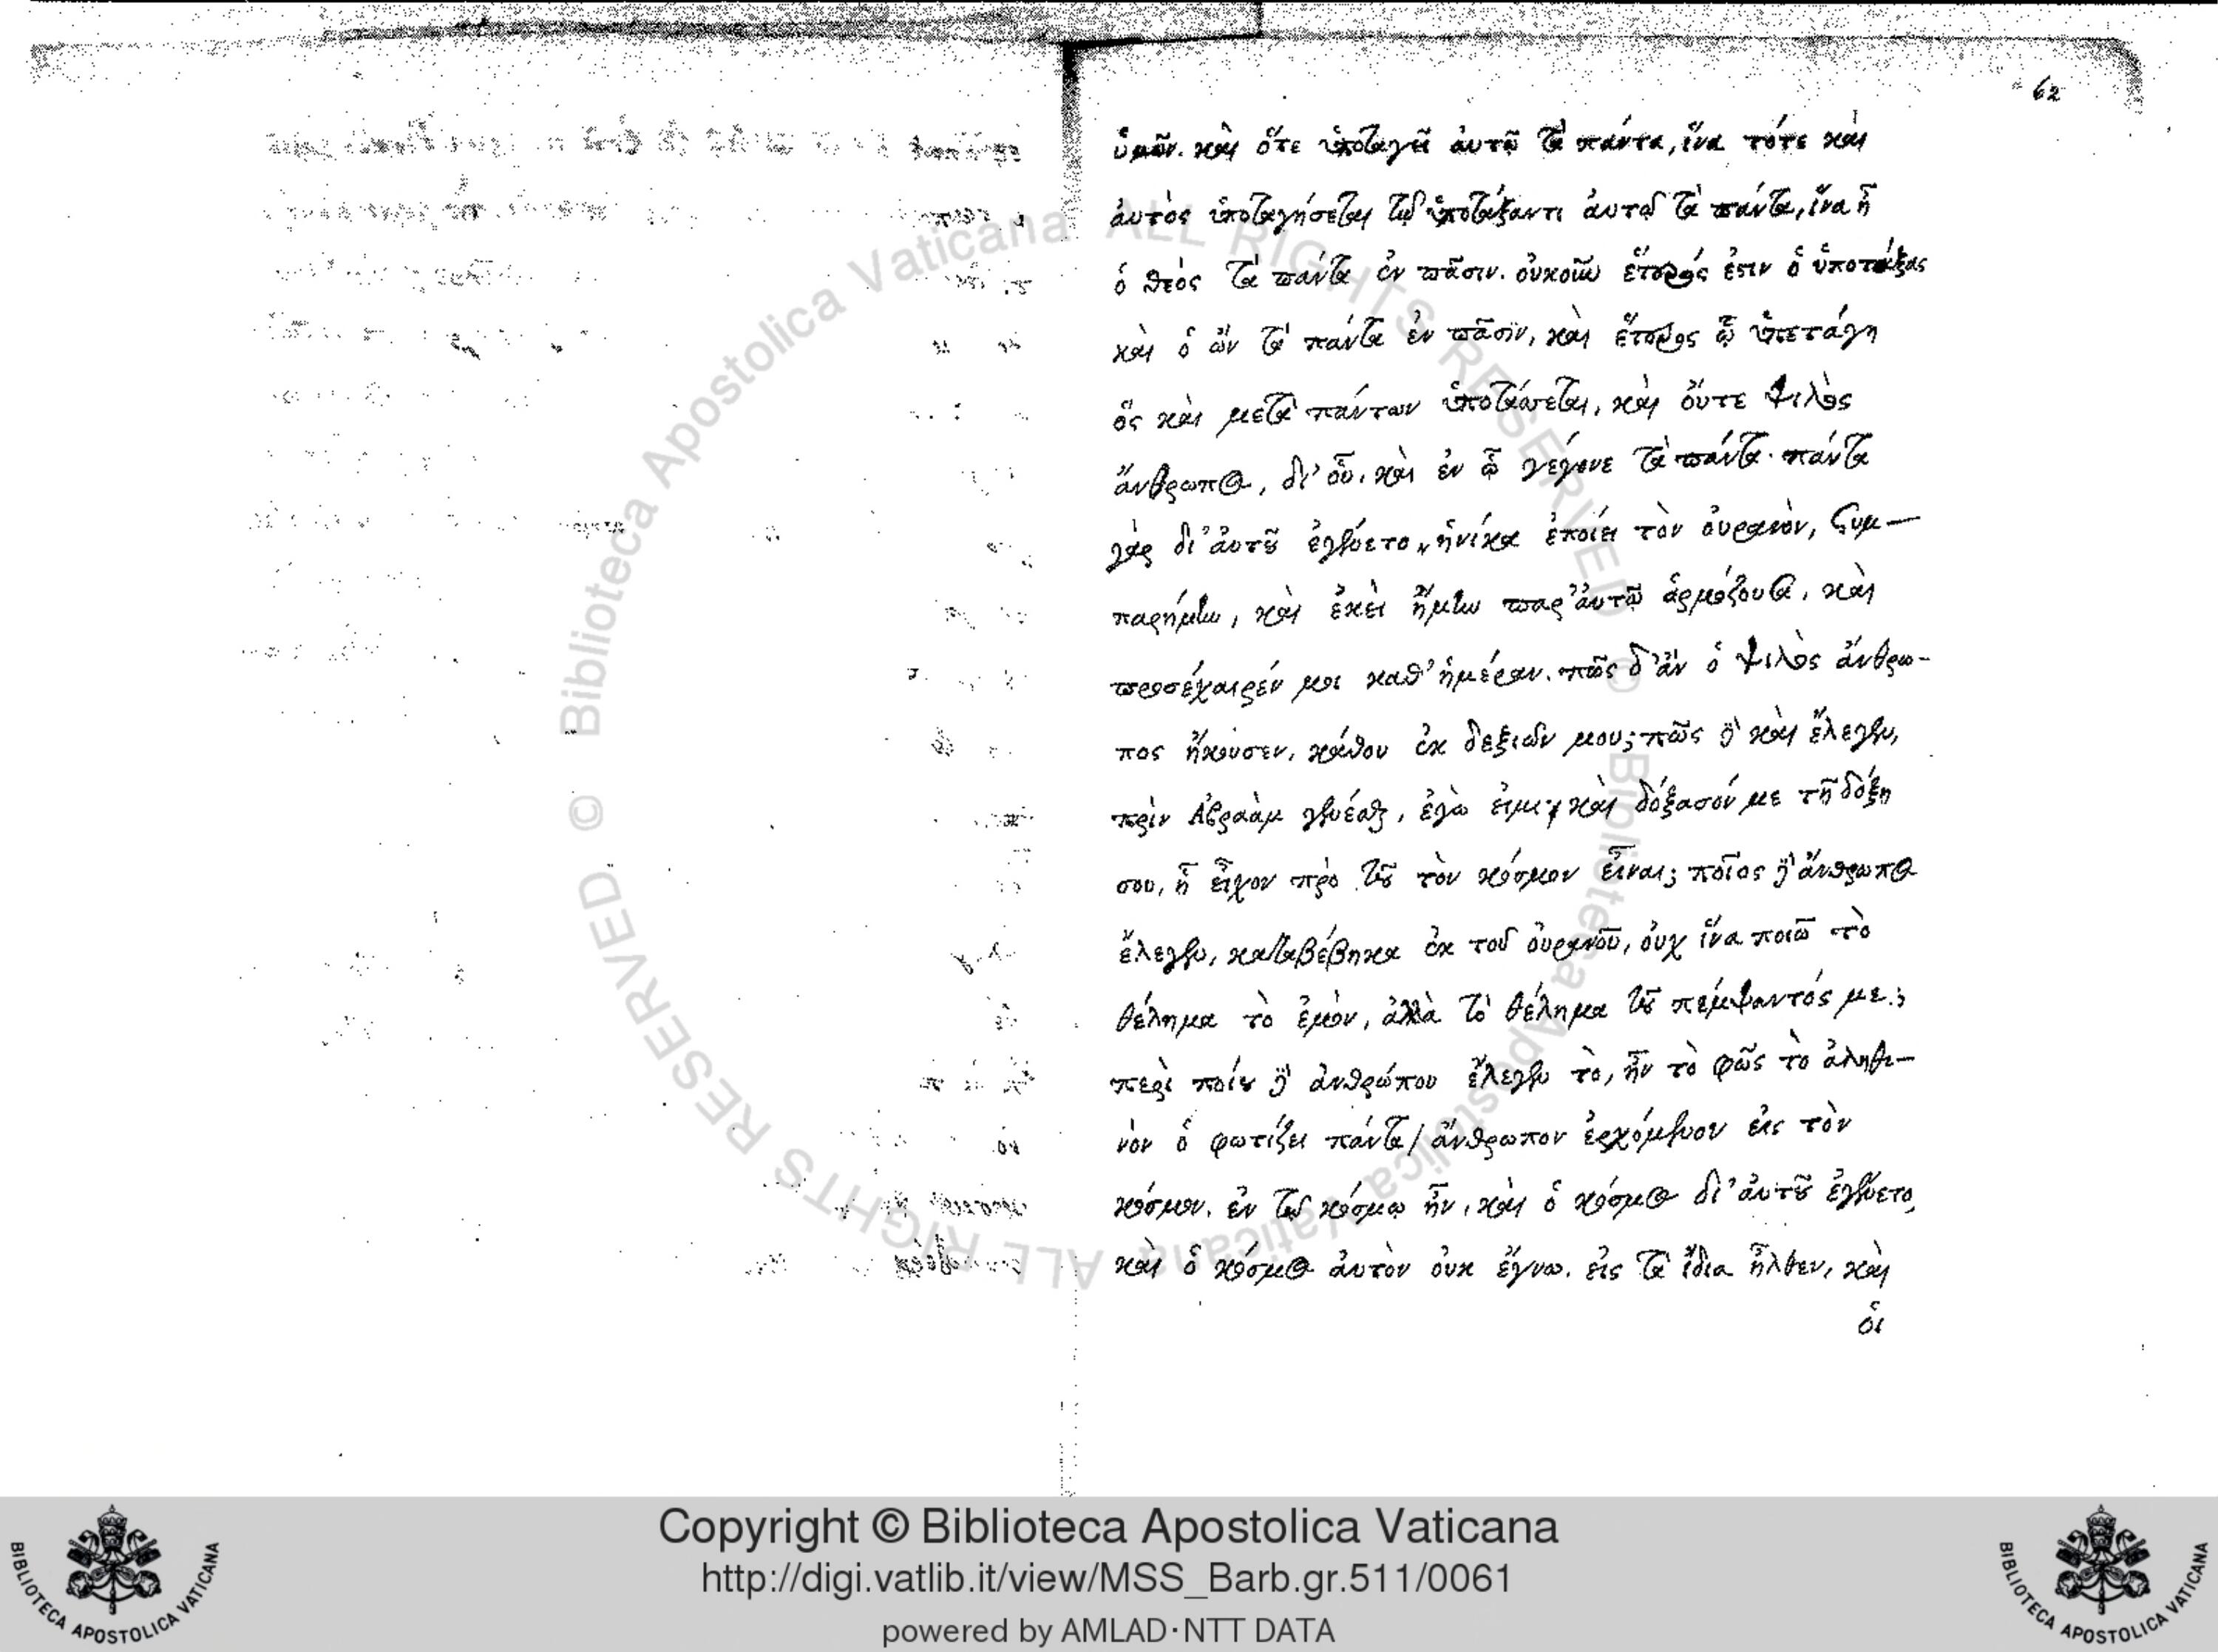 62
ὑμῶν. καὶ ὅτε ὑποταγῇ ἀυτῷ τὰ πάντα, ἵνα τότε καὶ
ἀυτὸς ὑποταγήσεται τῷ ὑποτάξαντι ἀυτῷ τὰ πάντα, ἵνα ᾖ
ὁ θεὸς τὰ πάντα ἐν πᾶσιν. οὐκοῦν ἕτερός ἐστιν ὁ ὑποτάξας
καὶ ὁ ὢν τὰ πάντα ἐν πᾶσιν, καὶ ἕτερος ᾧ ὑπετάγη
ὃς καὶ μετὰ πάντων ὑποτάσσεται, καὶ οὔτε ψιλὸς
ἄνθρωπος, δι' οὗ, καὶ ἐν ᾧ γέγονε τὰ πάντα· πάντα
γὰρ δι' ἀυτοῦ ἐγένετο, ἡνίκα ἐποίει τὸν ὀυρανὸν, συμ-
παρήμην, καὶ ἐκεὶ ἤμην παρ' ἀυτῷ ἁρμόζουσα, καὶ
προσέχαιρέν μοι καθ' ἡμέραν. πῶς δ' ἂν ὁ ψιλὸς ἄνθρω-
πος ἤκουσεν, κάθου ἐκ δεξιῶν μου; πῶς δὲ καὶ ἔλεγεν,
πρὶν Ἀβραὰμ γενέσθαι, ἐγὼ ἐιμι; καὶ δόξασόν με τῇ δόξῃ
σου, ᾗ εἶχον πρὸ τοῦ τὸν κόσμον εἶναι; ποῖος δὲ ἄνθρωπος
ἔλεγεν, καταβέβηκα ἐκ τοῦ ὀυρανοῦ, ὀυχ ἵνα ποιῶ τὸ
θέλημα τὸ ἐμὸν, ἀλλὰ τὸ θέλημα τοῦ πέμψαντός με;
περὶ ποίου δὲ ἀνθρώπου ἔλεγεν τὸ, ἦν τὸ φῶς τὸ ἀληθι-
νὸν ὁ φωτίζει πάντα ἄνθρωπον ἐρχόμενον ἐις τὸν
κόσμον. ἐν τῷ κόσμῳ ἦν, καὶ ὁ κόσμος δι' ἀυτοῦ ἐγένετο,
καὶ ὁ κόσμος ἀυτὸν ὀυκ ἔγνω. ἐις τὰ ἴδια ἦλθεν, καὶ
ὁι
© Biblioteca Apostolica Vaticana ALL RIGHTS RESERVED © Biblioteca Apostolica Vaticana ALL RIGHTS RESERVED
BIBLIOTECA APOSTOLICA VATICANA
Copyright © Biblioteca Apostolica Vaticana
http://digi.vatlib.it/view/MSS_Barb.gr.511/0061
powered by AMLAD·NTT DATA
BIBLIOTECA APOSTOLICA VATICANA